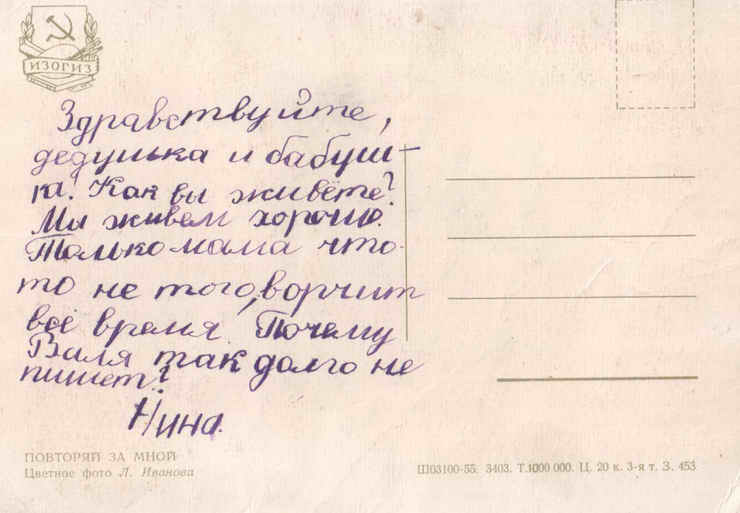 ИЗОГИЗ
Здравствуйте,
дедушка и бабуш-
ка! Как вы живёте?
Мы живем хорошо.
Только мама что-
то не того, ворчит
всё время. Почему
Валя так долго не
пишет?
Нина.
ПОВТОРЯЙ ЗА МНОЙ
Цветное фото Л. Иванова
Ш03100-55. 3403. Т.1000 000. Ц. 20 к. 3-я т. З. 453